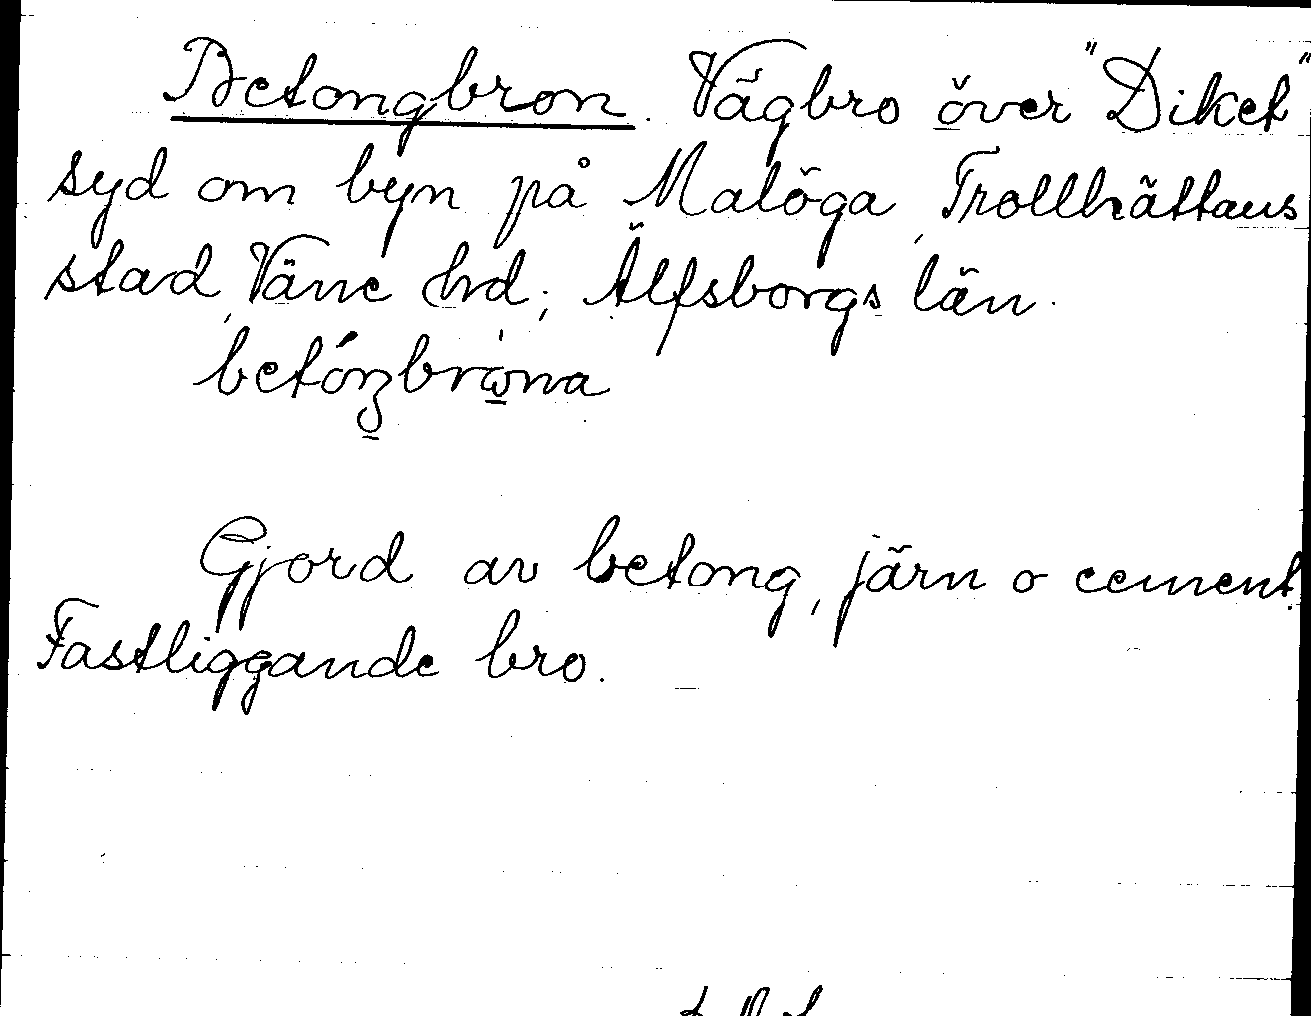 Betongbron. Vägbro över "Diket"
syd om byn på Malöga, Trollhättans
stad, Väne hd, Älfsborgs län.
betóŋbrὼna
Gjord av betong, järn o cement.
Fastliggande bro.